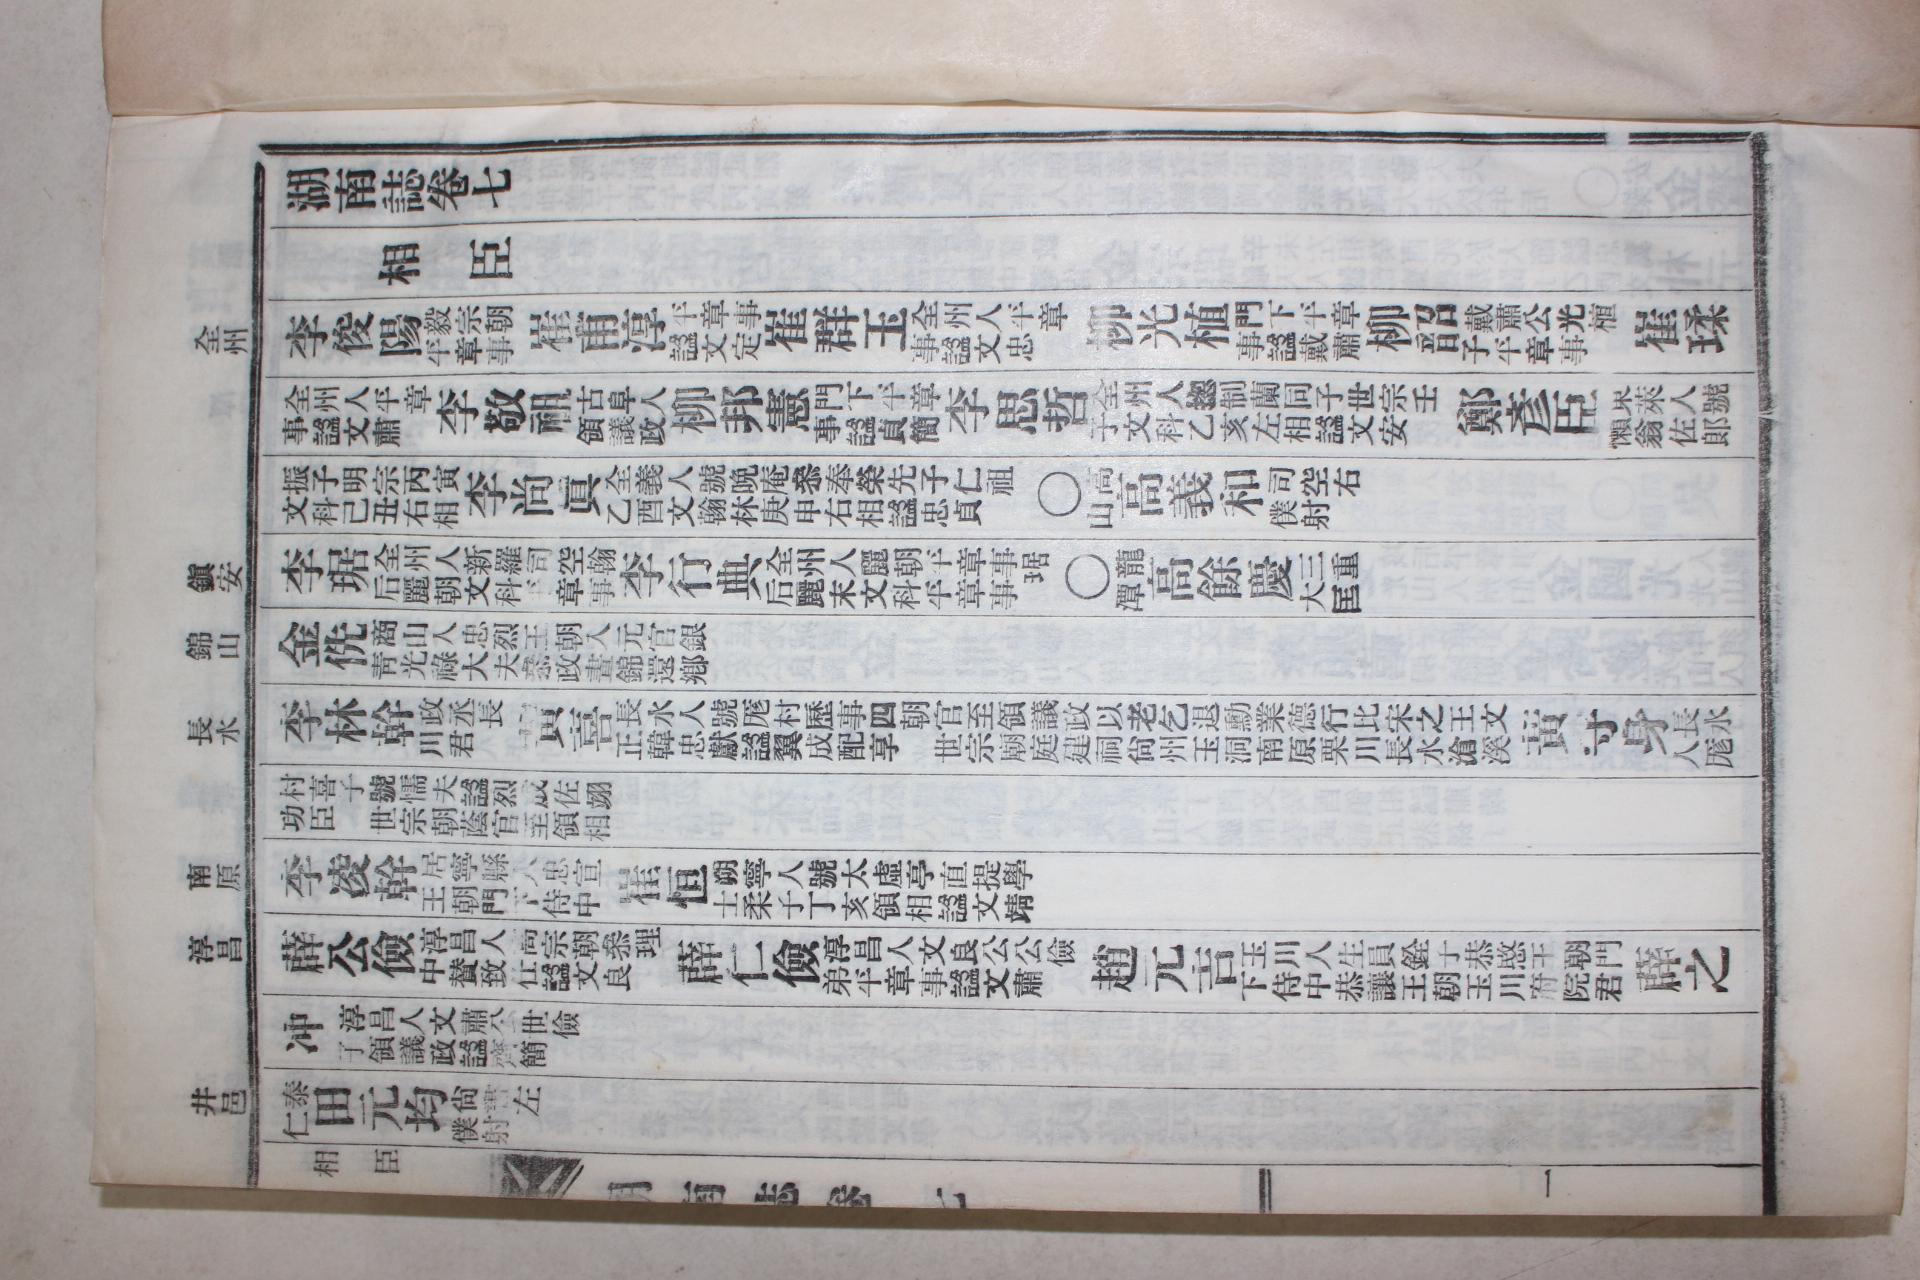 湖南誌卷七
相臣
全州
李俊陽毅宗朝平章事 崔甫淳平章事諡文定 崔群玉全州人平章事諡文忠 柳光植門下平章事諡戴肅 柳韶戴肅公光植子平章事 崔瑈
全州人平章事諡文肅 李敬祖古阜人領議政 柳邦憲門下平章事諡貞簡 李思哲全州人摠制蘭同子世宗壬子文科乙亥左相諡文安 鄭彥臣東萊人號懶翁佐郎
振子明宗丙寅文科己丑右相 李尙眞全義人號晩庵叅奉榮先子仁祖乙酉文翰林庚申右相諡忠貞 〇高山 高義和司空右僕射
鎭安
李琚全州人新羅司空翰后麗朝文科平章事 李行典全州人麗朝平章事琚后麗末文科平章事 〇龍潭 高餘慶三重大匡
錦山
金侁商山人忠烈王朝入元官銀靑光祿大夫叅政晝錦還鄕
長水
李林幹政丞長川君 黃喜長水人號厖村歷事四朝官至領議政以老乞退勳業德行比宋之王文正韓忠獻諡翼成配享 世宗廟庭建祠尙州玉洞南原栗川長水滄溪 黃守身長水人厖
村喜子號懦夫諡烈成佐翊功臣 世宗朝蔭官至領相
南原
李凌幹居寧縣人忠宣王朝門下侍中 崔恒朔寧人號太虛亭直提學士柔子丁亥領相諡文靖
淳昌
薛公儉淳昌人高宗朝叅理中贊致仕諡文良 薛仁儉淳昌人文良公公儉弟平章事諡文肅 趙元吉玉川人生員銓子恭愍王朝門下侍中恭讓王朝玉川府院君 薛之
冲淳昌人文肅公世儉子領議政諡齊簡
井邑
泰仁 田元均尙書左僕射
相臣
湖南誌卷七
一